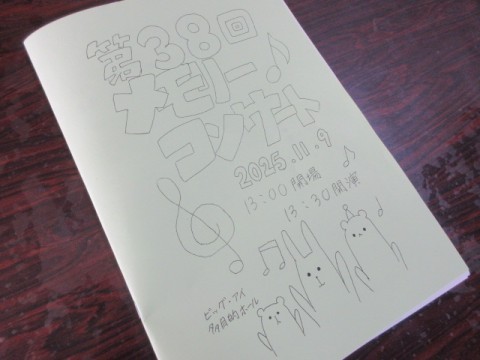 第38回
メモリー
コンサート
2025.11.9
13:00 開場
13:30 開演
ビッグ・アイ
多目的ホール